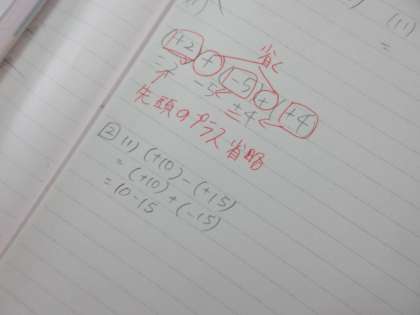 (11)
=
省く
(+2)+(-5)+(+4)
=2-5+4
先頭のプラス省略
2 (1) (+10)-(+15)
=(+10)+(-15)
=10-15